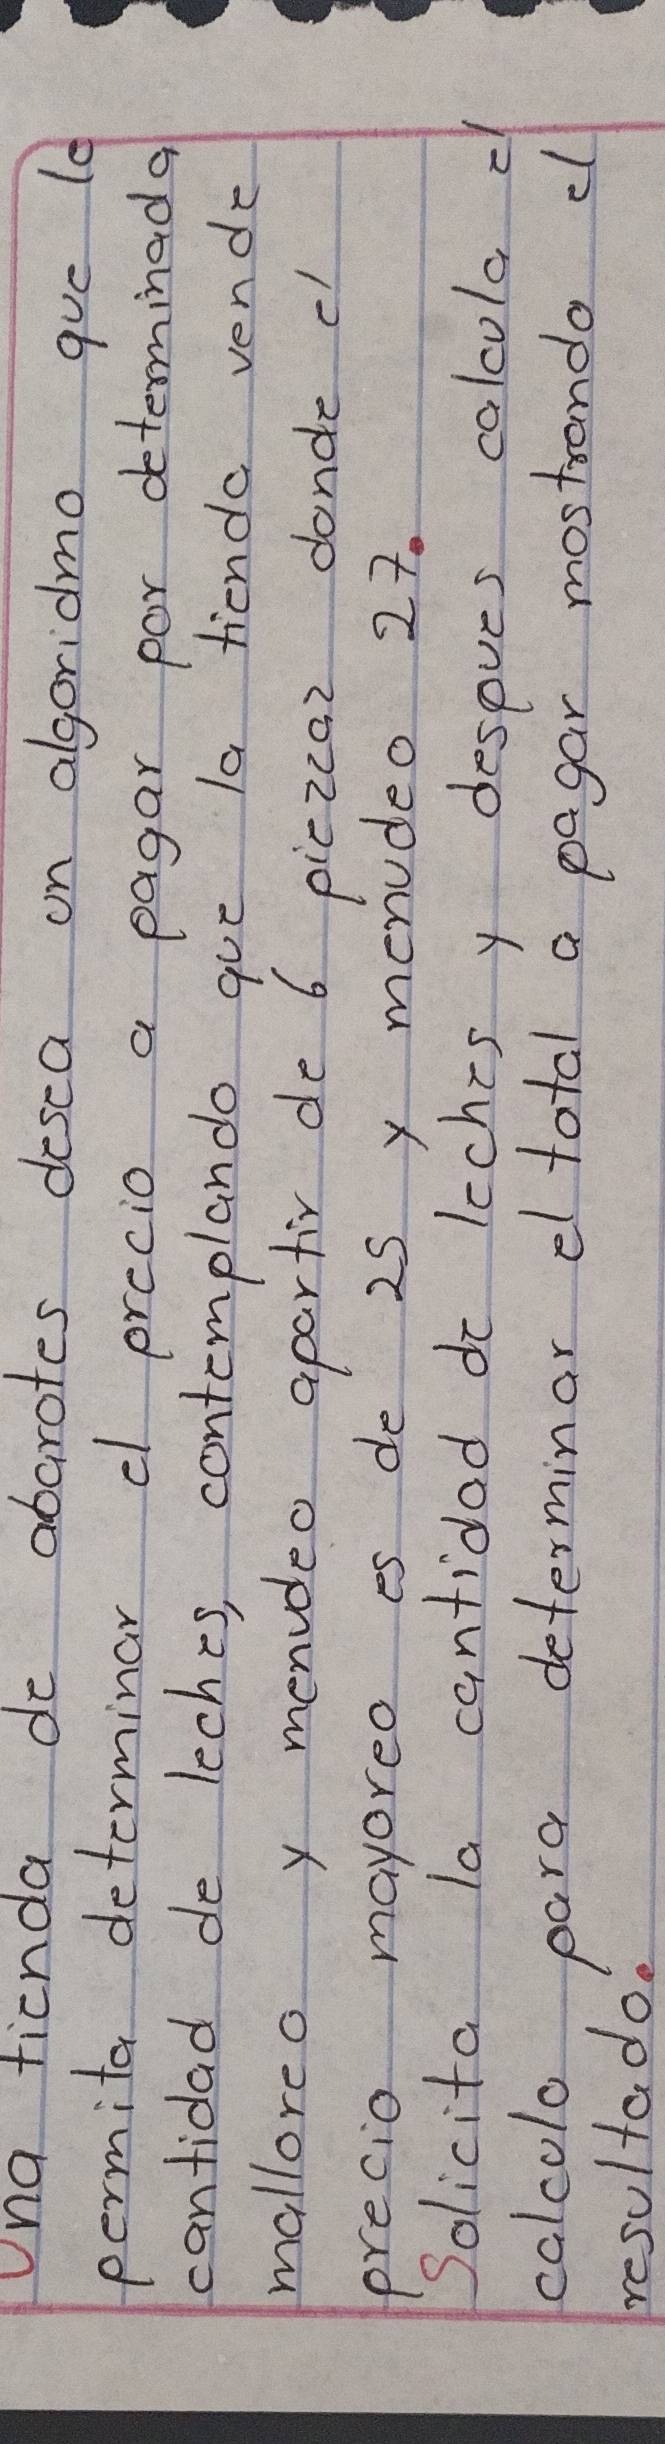 Una tienda de abarotes desea un algoridmo que le
permita determinar el precio a pagar por determinada
cantidad de leches, contemplando que la tienda vende
malloreo y menudeo apartir de 6 piezcaz donde el
precio mayoreo es de 25 y menudeo 27.
Solicita la cantidad de leches y despues calcula el
calculo para determinar el total a pagar mostrando el
resultado.